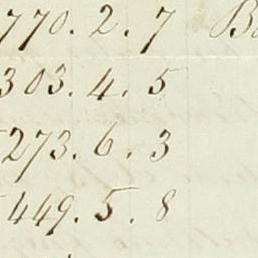 770. 2. 7
303. 4. 5
273. 6. 3
449. 5. 8